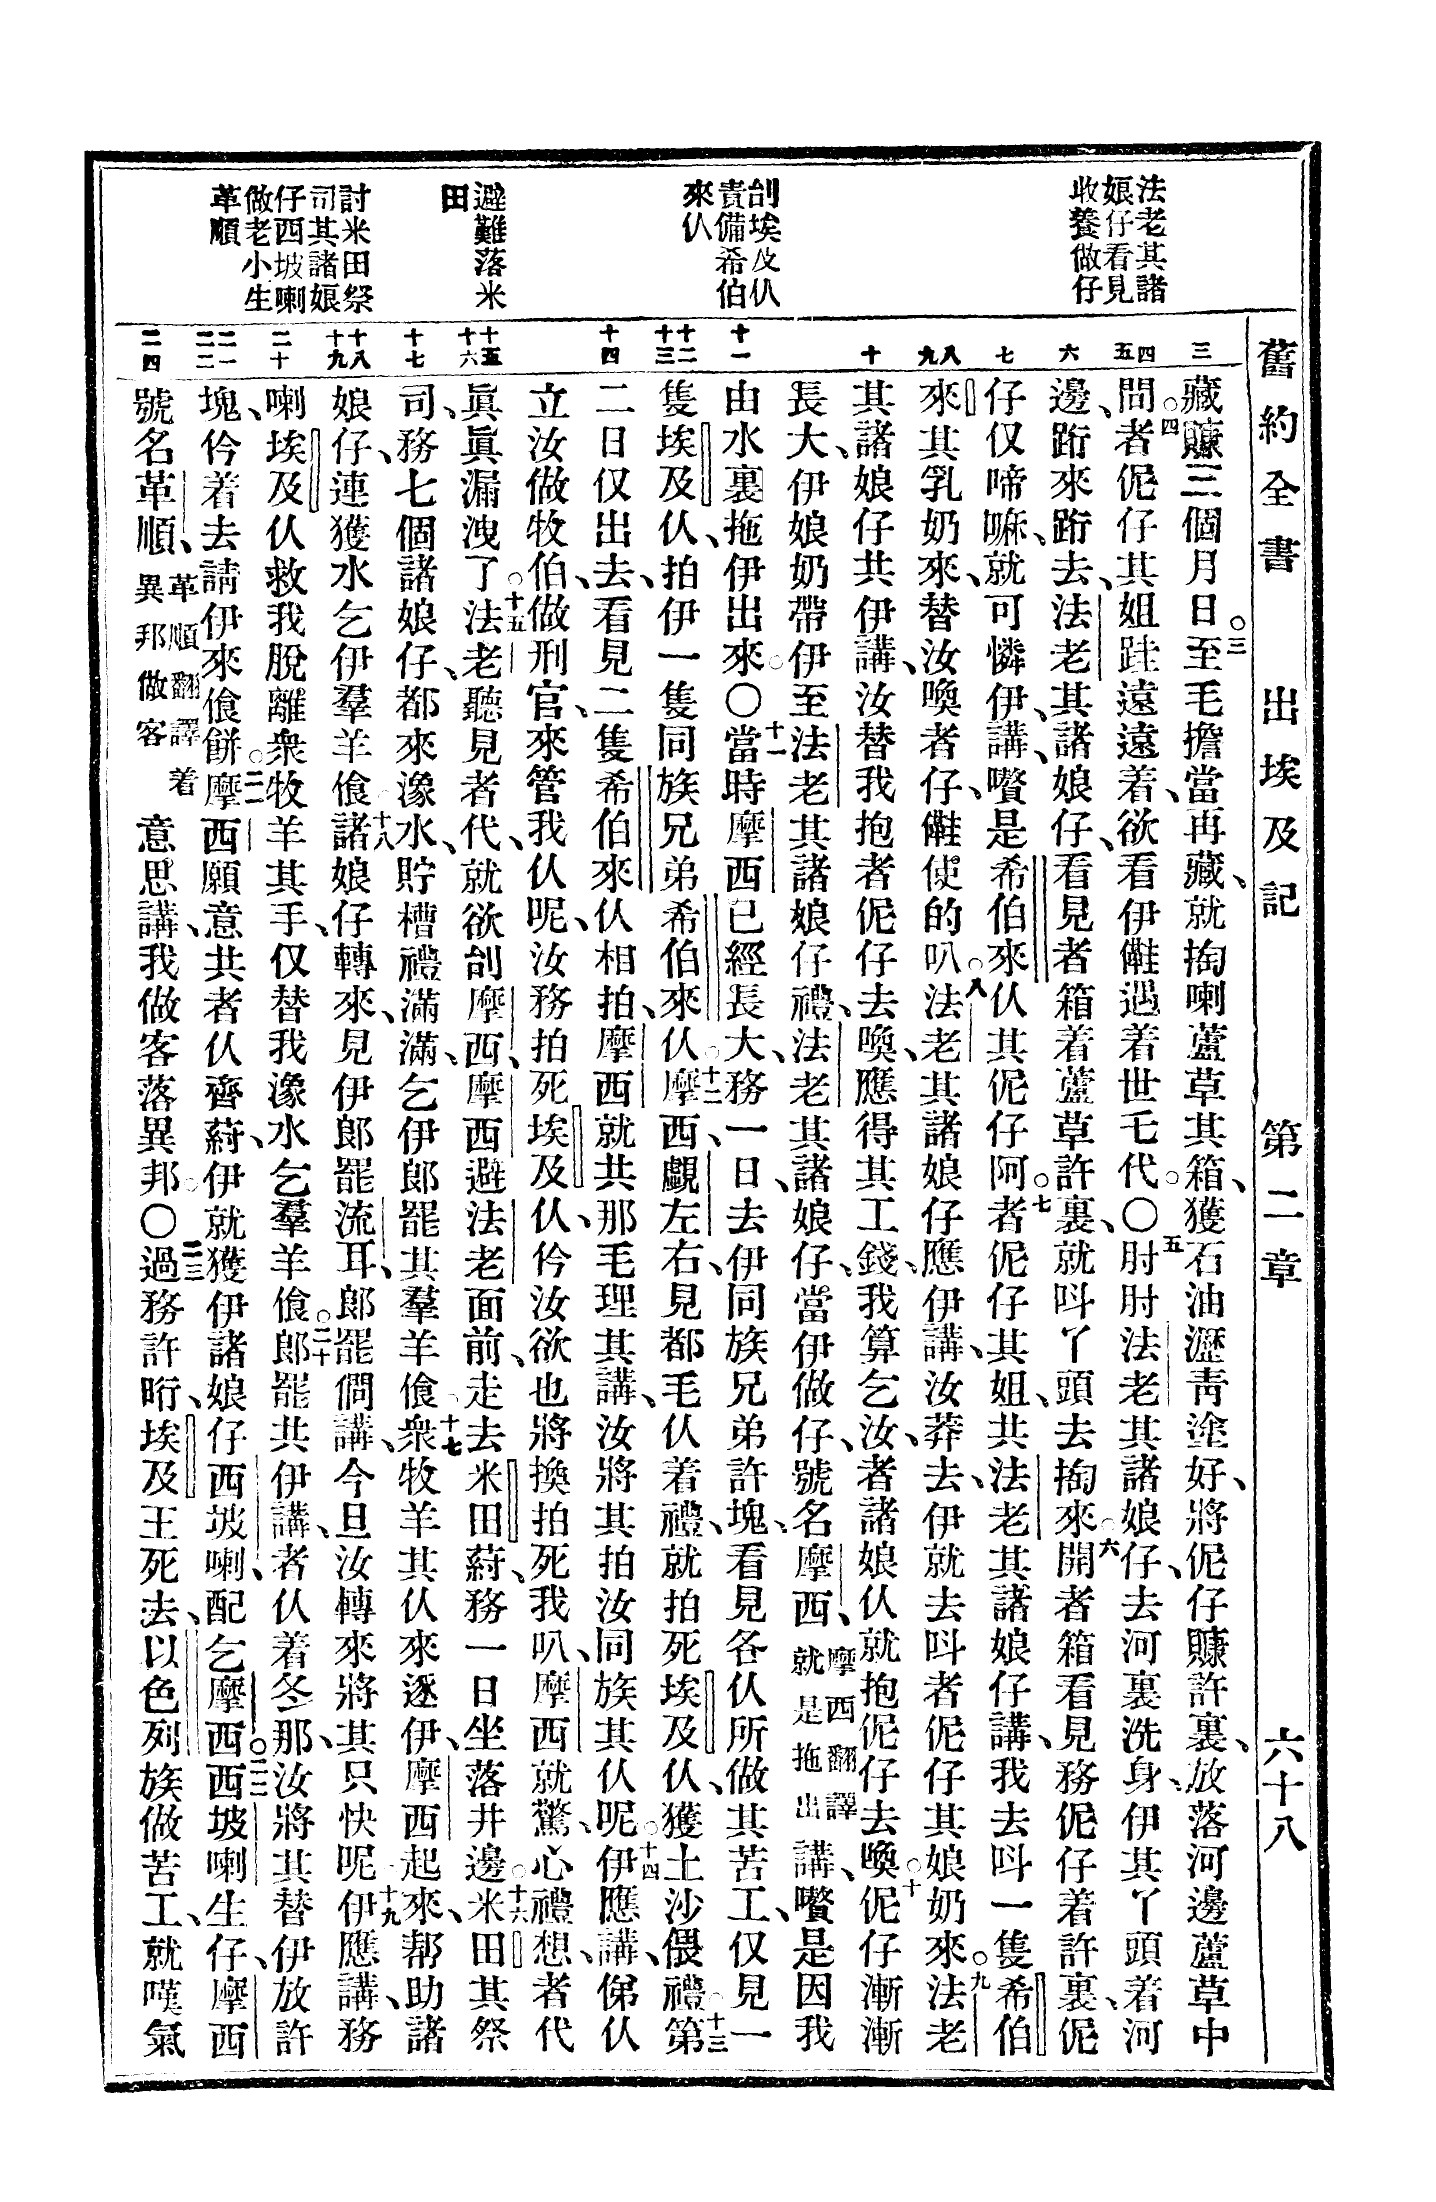 舊約全書 出埃及記 第二章 六十八
法老其諸
娘仔看見
收養做仔
刣埃及仈
責備希伯
來仈
避難落米
田
討米田祭
司其諸娘
仔西坡喇
做老小生
革順
三
四
五
六
七
八
九
十
十一
十二
十三
十四
十五
十六
十七
十八
十九
二十
二一
二二
二四
藏賺三個月日。三至毛擔當再藏、就掏喇蘆草其箱、獲石油瀝靑塗好、將伲仔賺許裏、放落河邊蘆草中
間。四者伲仔其姐跬遠遠着、欲看伊㒰遇着世乇代。〇五肘肘法老其諸娘仔、去河裏洗身、伊其丫頭着河
邊、跔來跔去、法老其諸娘仔、看見者箱着蘆草許裏、就呌丫頭去掏來。六開者箱看見務伲仔着許裏、伲
仔仅啼嘛、就可憐伊、講、嚽是希伯來仈其伲仔阿。七者伲仔其姐、共法老其諸娘仔講、我去呌一隻希伯
來其乳奶來、替汝喚者仔、㒰使的叭。八法老其諸娘仔應伊講、汝莽去、伊就去呌者伲仔其娘奶來。九法老
其諸娘仔共伊講、汝替我抱者伲仔去喚、應得其工錢、我算乞汝、者諸娘仈就抱伲仔去喚。十伲仔漸漸
長大、伊娘奶帶伊至法老其諸娘仔禮、法老其諸娘仔、當伊做仔、號名摩西、摩西翻譯就是拖出講、嚽是因我
由水裏拖伊出來。〇十一當時摩西已經長大、務一日、去伊同族兄弟許塊、看見各仈所做其苦工、仅見一
隻埃及仈、拍伊一隻同族兄弟希伯來仈。十二摩西、覷左右、見都毛仈着禮、就拍死埃及仈、獲土沙偎禮。十三第
二日仅出去、看見二隻希伯來仈相拍、摩西就共那毛理其講、汝將其拍汝同族其仈呢。十四伊應講、俤仈
立汝做牧伯、做刑官、來管我仈呢、汝務拍死埃及仈、仱汝欲也將換拍死我叭、摩西就驚、心禮想、者代
眞眞漏洩了。十五法老聽見者代、就欲刣摩西、摩西避法老面前、走去米田䓟、務一日坐落井邊。十六米田其祭
司、務七個諸娘仔、都來潒水、貯槽禮滿滿、乞伊郎罷其羣羊飧。十七衆牧羊其仈來逐伊、摩西起來、幇助諸
娘仔、連獲水乞伊羣羊飧。十八諸娘仔轉來、見伊郎罷流耳、郎罷僩講、今旦汝轉來將其只快呢。十九伊應講、務
喇埃及仈救我脫離衆牧羊其手、仅替我潒水乞羣羊飧。二十郎罷共伊講、者仈着冬那、汝將其替伊放許
塊、仱着去請伊來飧餅。二一摩西願意共者仈齊䓟、伊就獲伊諸娘仔西坡喇、配乞摩西。二二西坡喇生仔、摩西
號名革順、革順翻譯着異邦做客意思講、我做客落異邦。〇二三過務許晍、埃及王死去、以色列族做苦工、就嘆氣